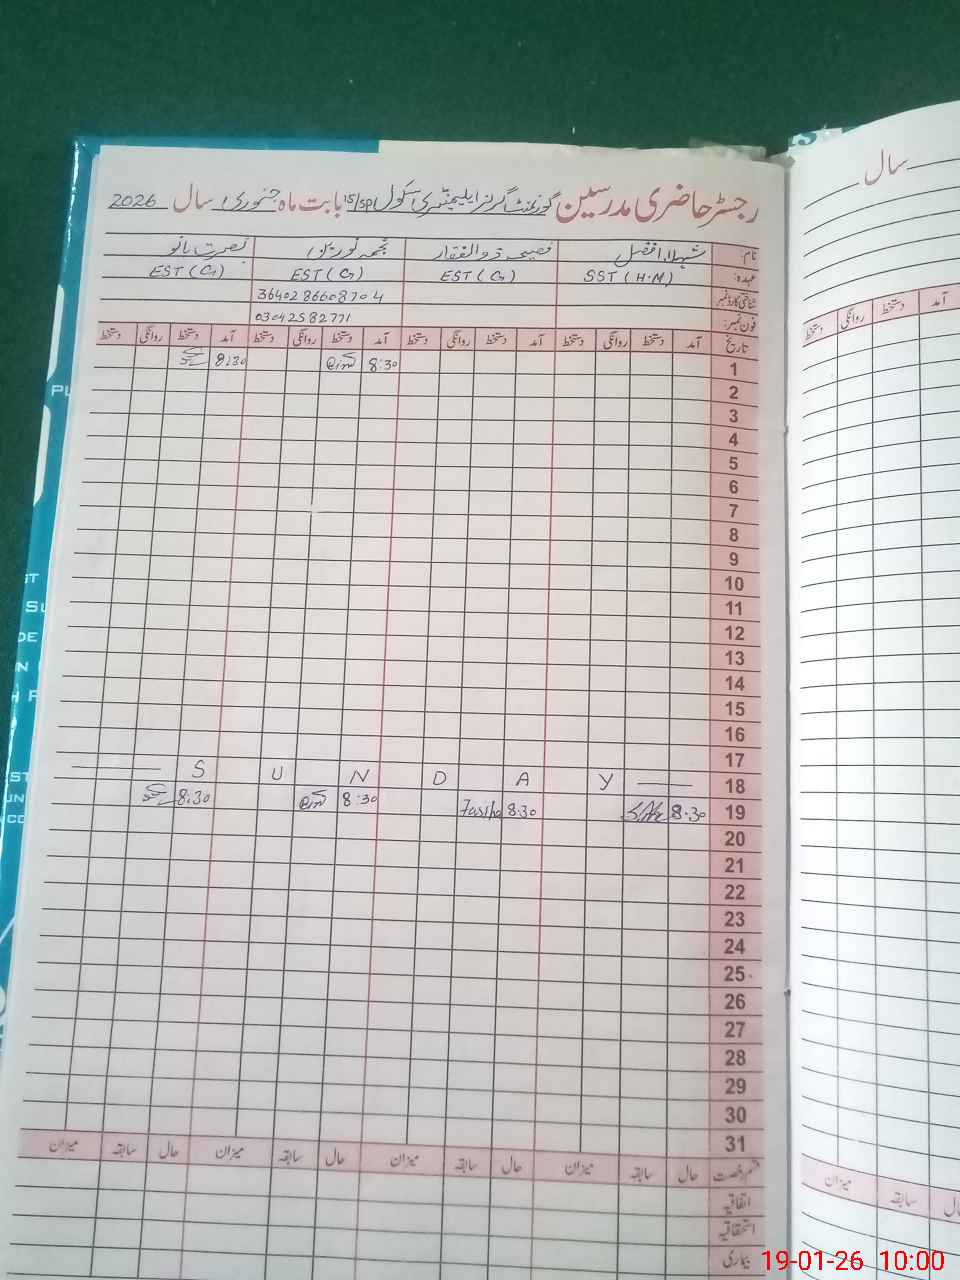 رجسٹر حاضری مدرسین گورنمنٹ گرلز ایلیمنٹری سکول 15/SP بابت ماہ جنوری سال 2026
نام: شہلا افضل فصیحہ ذوالفقار نجمہ نورین نصرت بانو
عہدہ: SST (H.M) EST (G) EST (G) EST (G)
شناختی کارڈ نمبر 3640286608704
فون نمبر: 03042582771
تاریخ آمد دستخط روانگی دستخط آمد دستخط روانگی دستخط آمد دستخط روانگی دستخط آمد دستخط روانگی دستخط
1 8:30 8:30
2
3
4
5
6
7
8
9
10
11
12
13
14
15
16
17
18 S U N D A Y
19 8:30 8:30 Fasiha 8:30 8:30
20
21
22
23
24
25
26
27
28
29
30
31
قسم رخصت حال سابقہ میزان حال سابقہ میزان حال سابقہ میزان حال سابقہ میزان
اتفاقیہ
استحقاقیہ
بیماری
سال
آمد دستخط روانگی دستخط
حال سابقہ میزان
19-01-26 10:00